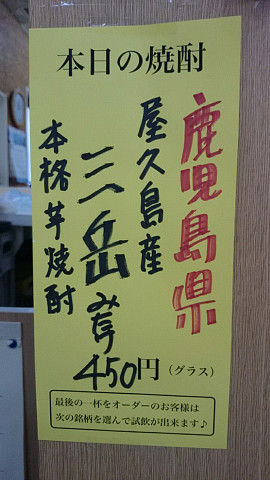 本日の焼酎
鹿児島県
屋久島産
三岳 みたけ
本格芋焼酎
450円(グラス)
最後の一杯をオーダーのお客様は
次の銘柄を選んで試飲が出来ます♪